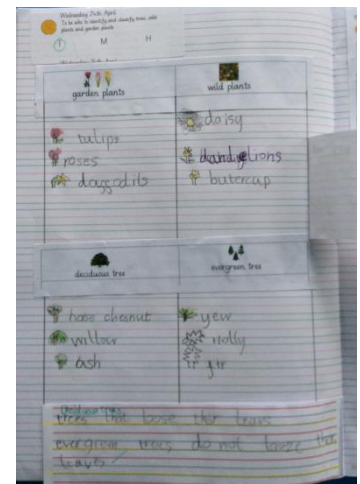 Wednesday 24th April
To be able to identify and classify trees, wild
plants and garden plants
T M H
garden plants wild plants
tulips daisy
roses dandylions
daggodils butercup
deciduous tree evergreen tree
hose chesnut yew
willow Holly
ash fir
trees that loose ther leavs
evergreen trees do not looze ther
leaves